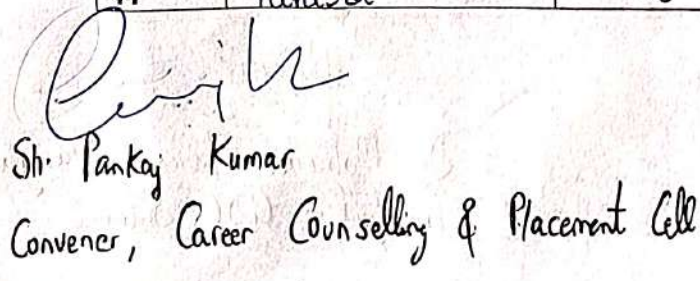 Sh. Pankaj Kumar
Convener, Career Counselling & Placement Cell